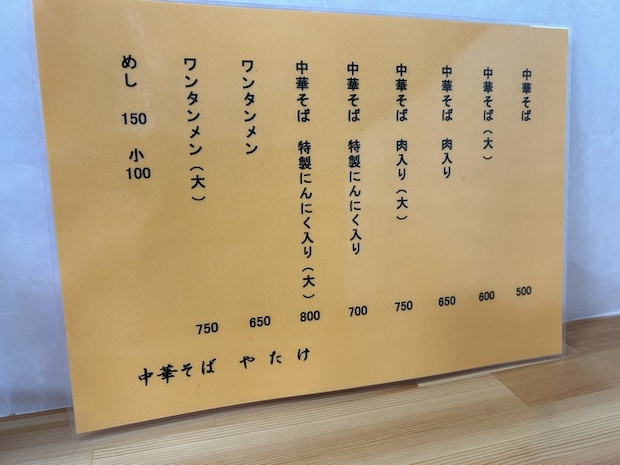 中華そば 500
中華そば(大) 600
中華そば 肉入り 650
中華そば 肉入り(大) 750
中華そば 特製にんにく入り 700
中華そば 特製にんにく入り(大) 800
ワンタンメン 650
ワンタンメン(大) 750
めし 150 小 100
中華そば やたけ